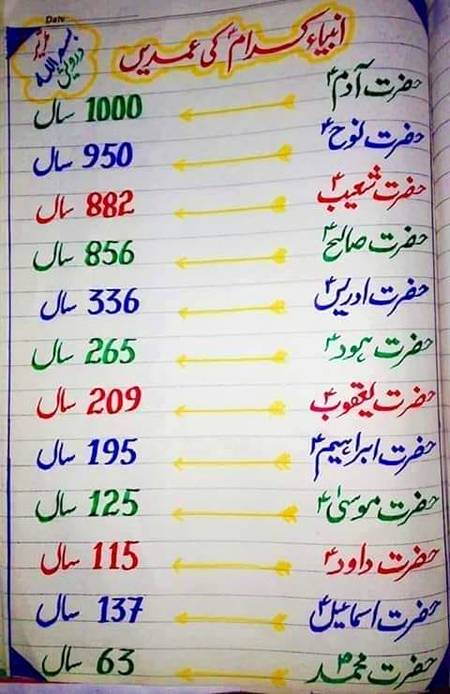 Date
انبیاء کرامؑ کی عمریں
حضرت آدمؑ 1000 سال
حضرت نوحؑ 950 سال
حضرت شعیبؑ 882 سال
حضرت صالحؑ 856 سال
حضرت ادریسؑ 336 سال
حضرت ہودؑ 265 سال
حضرت یعقوبؑ 209 سال
حضرت ابراہیمؑ 195 سال
حضرت موسیٰؑ 125 سال
حضرت داودؑ 115 سال
حضرت اسماعیلؑ 137 سال
حضرت محمدؐ 63 سال